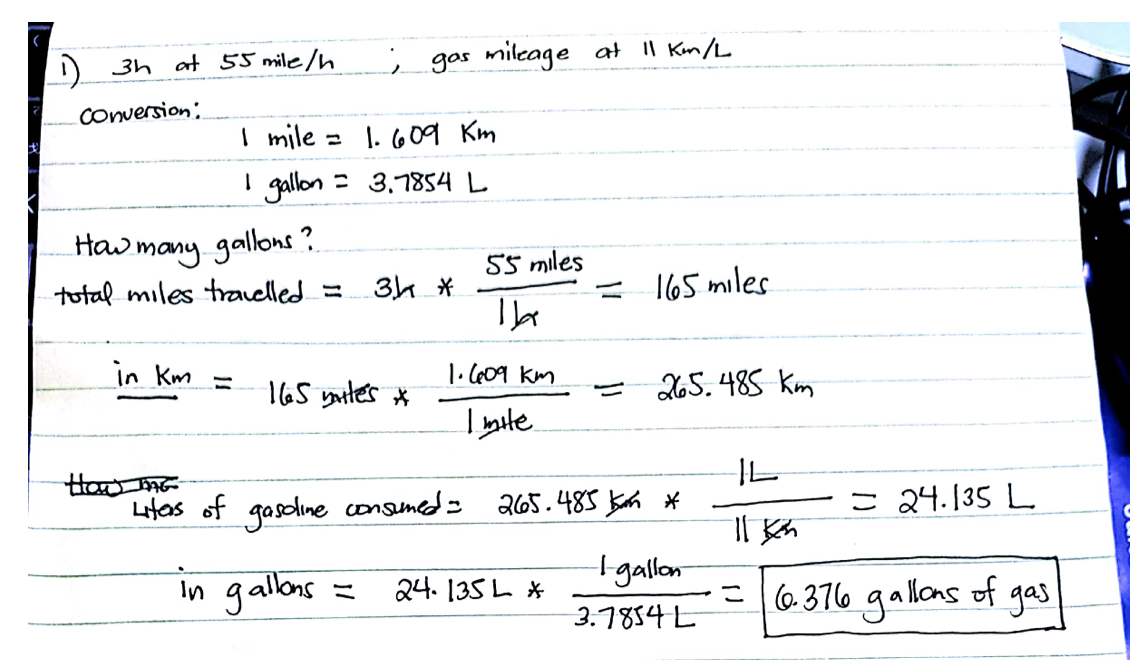 1) 3h at 55 mile/h ; gas mileage at 11 Km/L
conversion:
1 mile = 1.609 Km
1 gallon = 3.7854 L
How many gallons?
total miles travelled = 3h * 55 miles / 1h = 165 miles
in Km = 165 miles * 1.609 Km / 1 mile = 265.485 Km
Liters of gasoline consumed = 265.485 Km * 1L / 11 Km = 24.135 L
in gallons = 24.135 L * 1 gallon / 3.7854 L = 6.376 gallons of gas